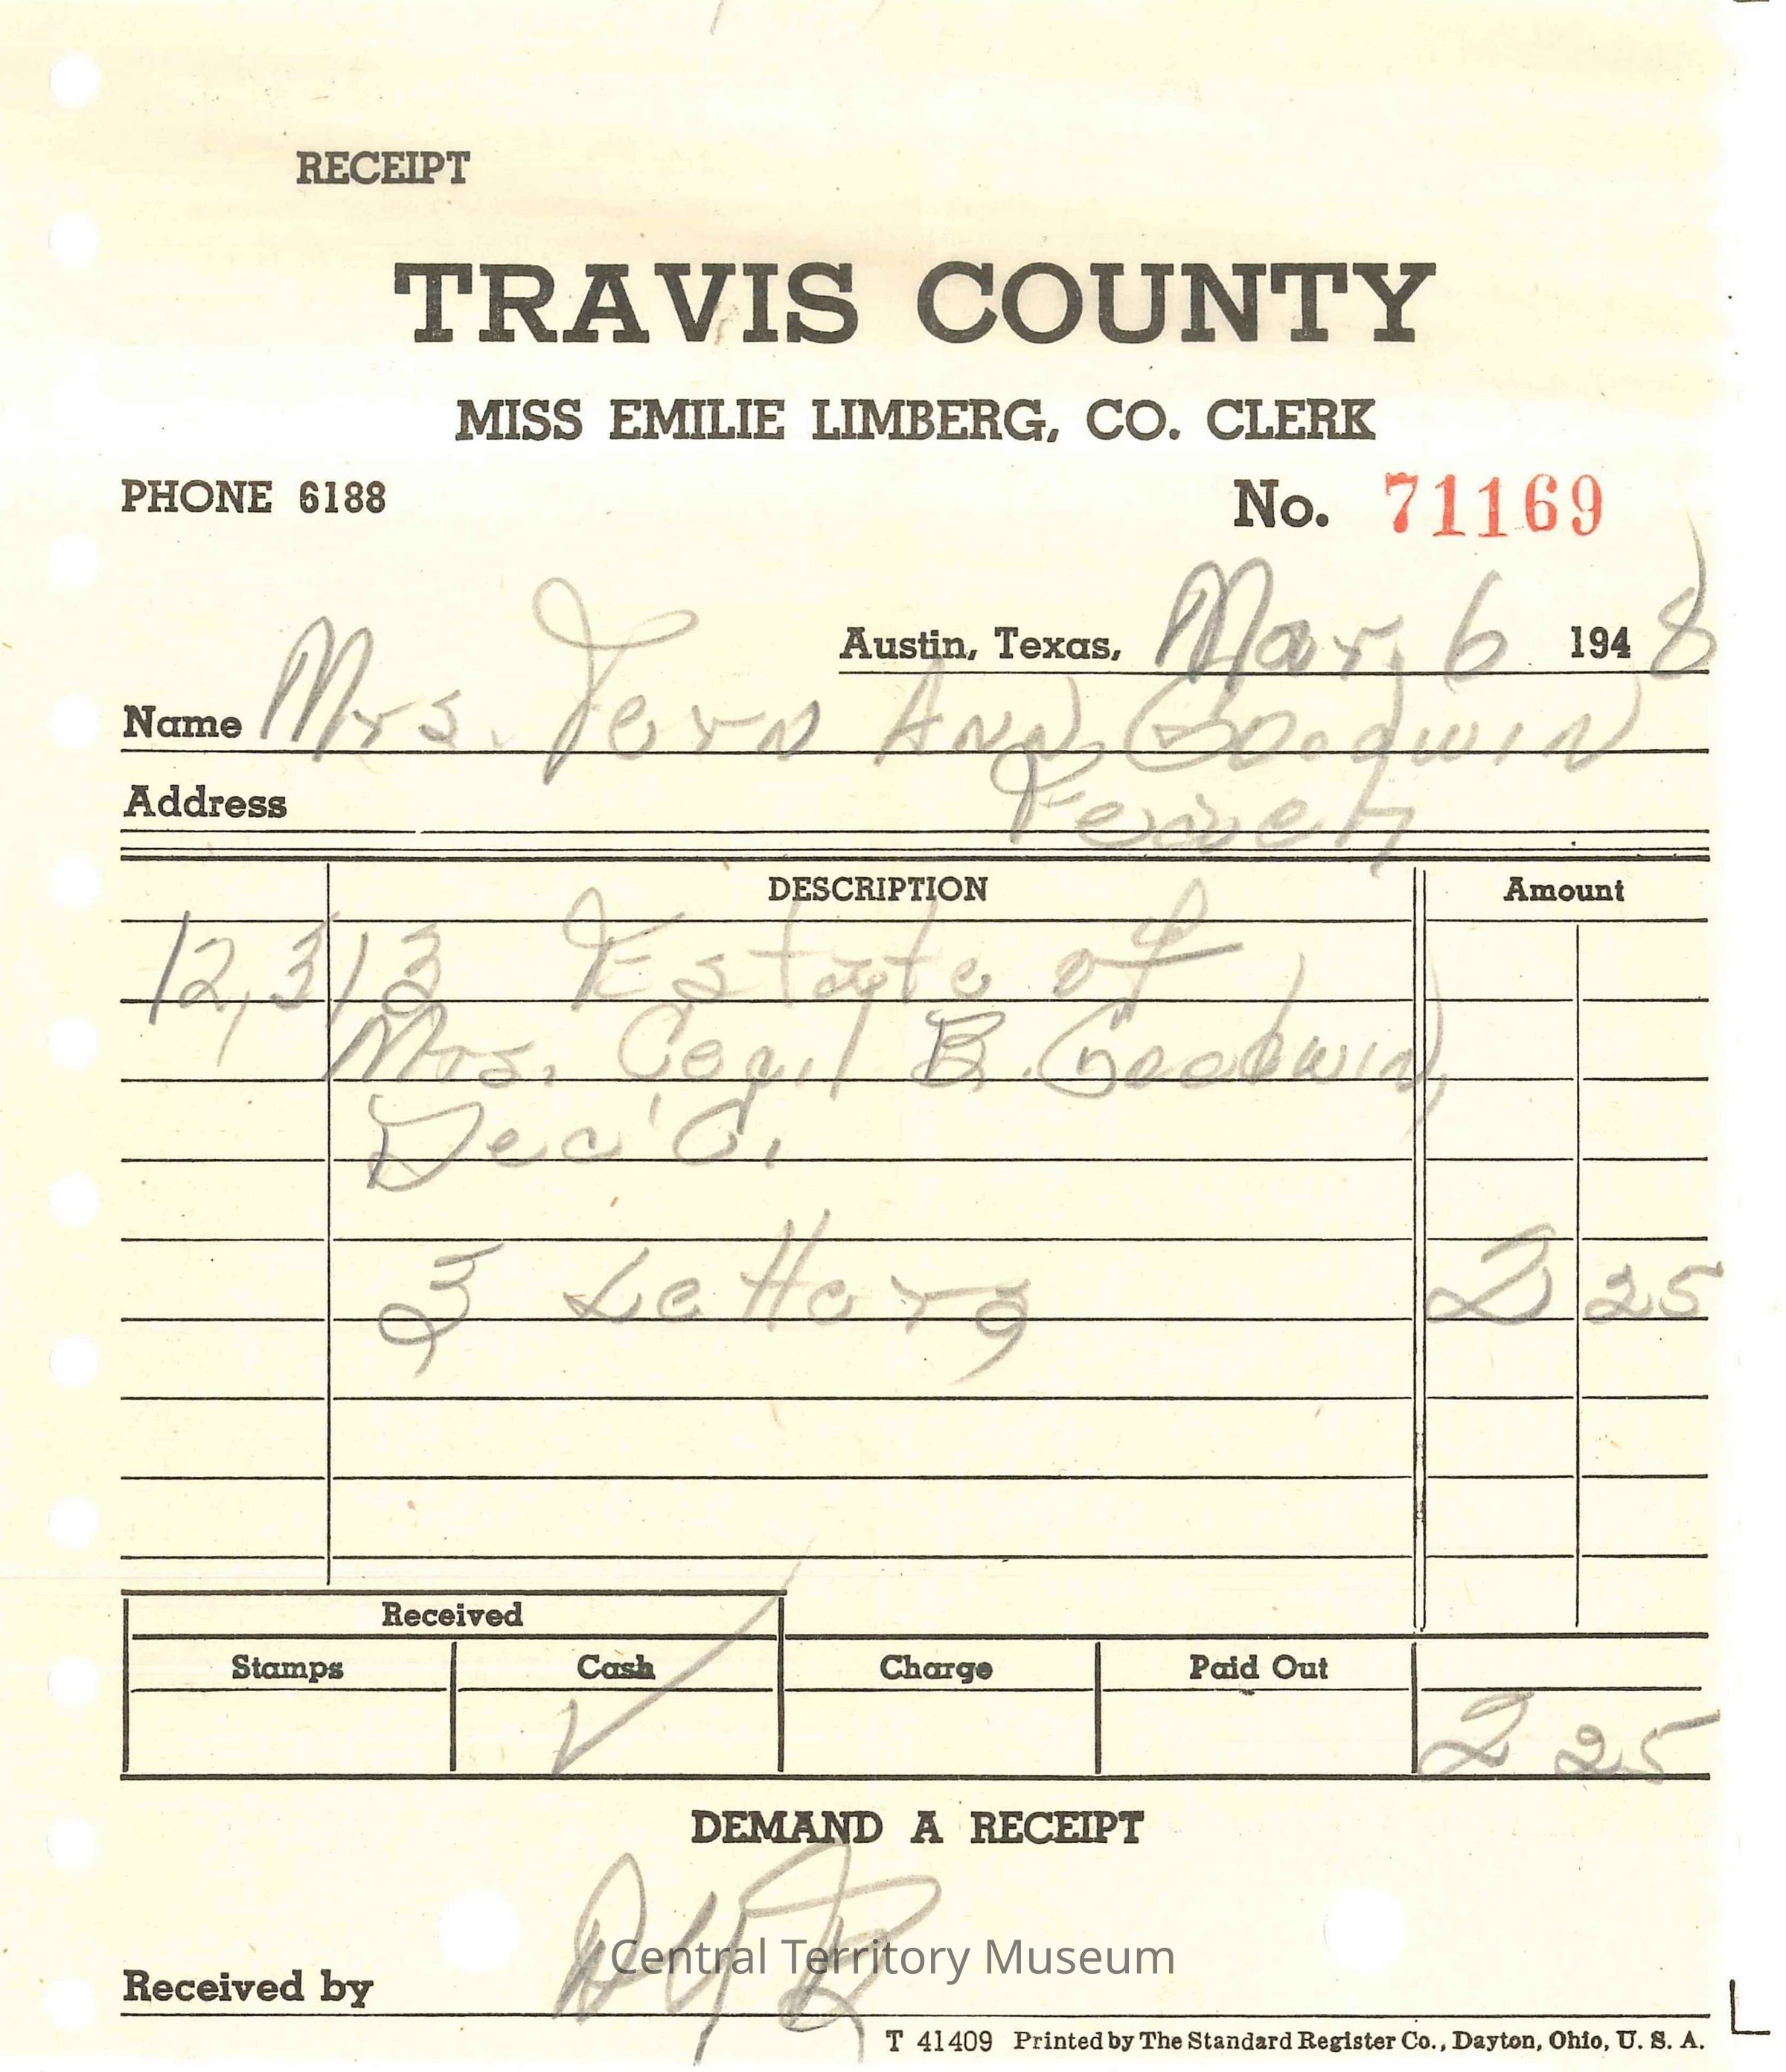 RECEIPT
TRAVIS COUNTY
MISS EMILIE LIMBERG, CO. CLERK
PHONE 6188 No. 71169
Austin, Texas, Mar. 6 1948
Name Mrs. Fern Ann Goodwin
Address
DESCRIPTION Amount
12,313 Estate of
Mrs. Cecil B. Goodwin,
Dec'd.
3 Letters 2 25
Received
Stamps Cash Charge Paid Out
2 25
DEMAND A RECEIPT
Central Territory Museum
Received by
T 41409 Printed by The Standard Register Co., Dayton, Ohio, U. S. A.